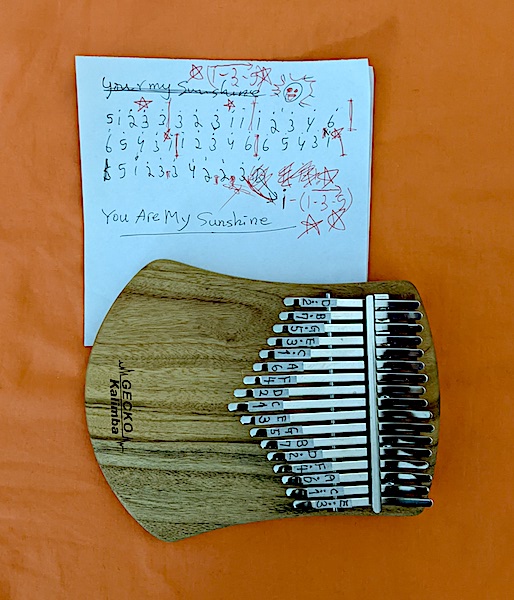 You r my Sunshine (1-3-5)
5 1 2 3 3 | 3 2 3 1 1 | 1 2 3 4 6 |
6 5 4 3 1 | 1 2 3 4 6 | 6 5 4 3 1
5 1 2 3 3 4 2 2 3
i - (1-3-5)
You Are My Sunshine
GECKO
Kalimba
2 D
7 B
5 G
3 E
1 C
6 A
4 F
2 D
1 C
3 E
5 G
7 B
2 D
4 F
6 A
1 C
3 E